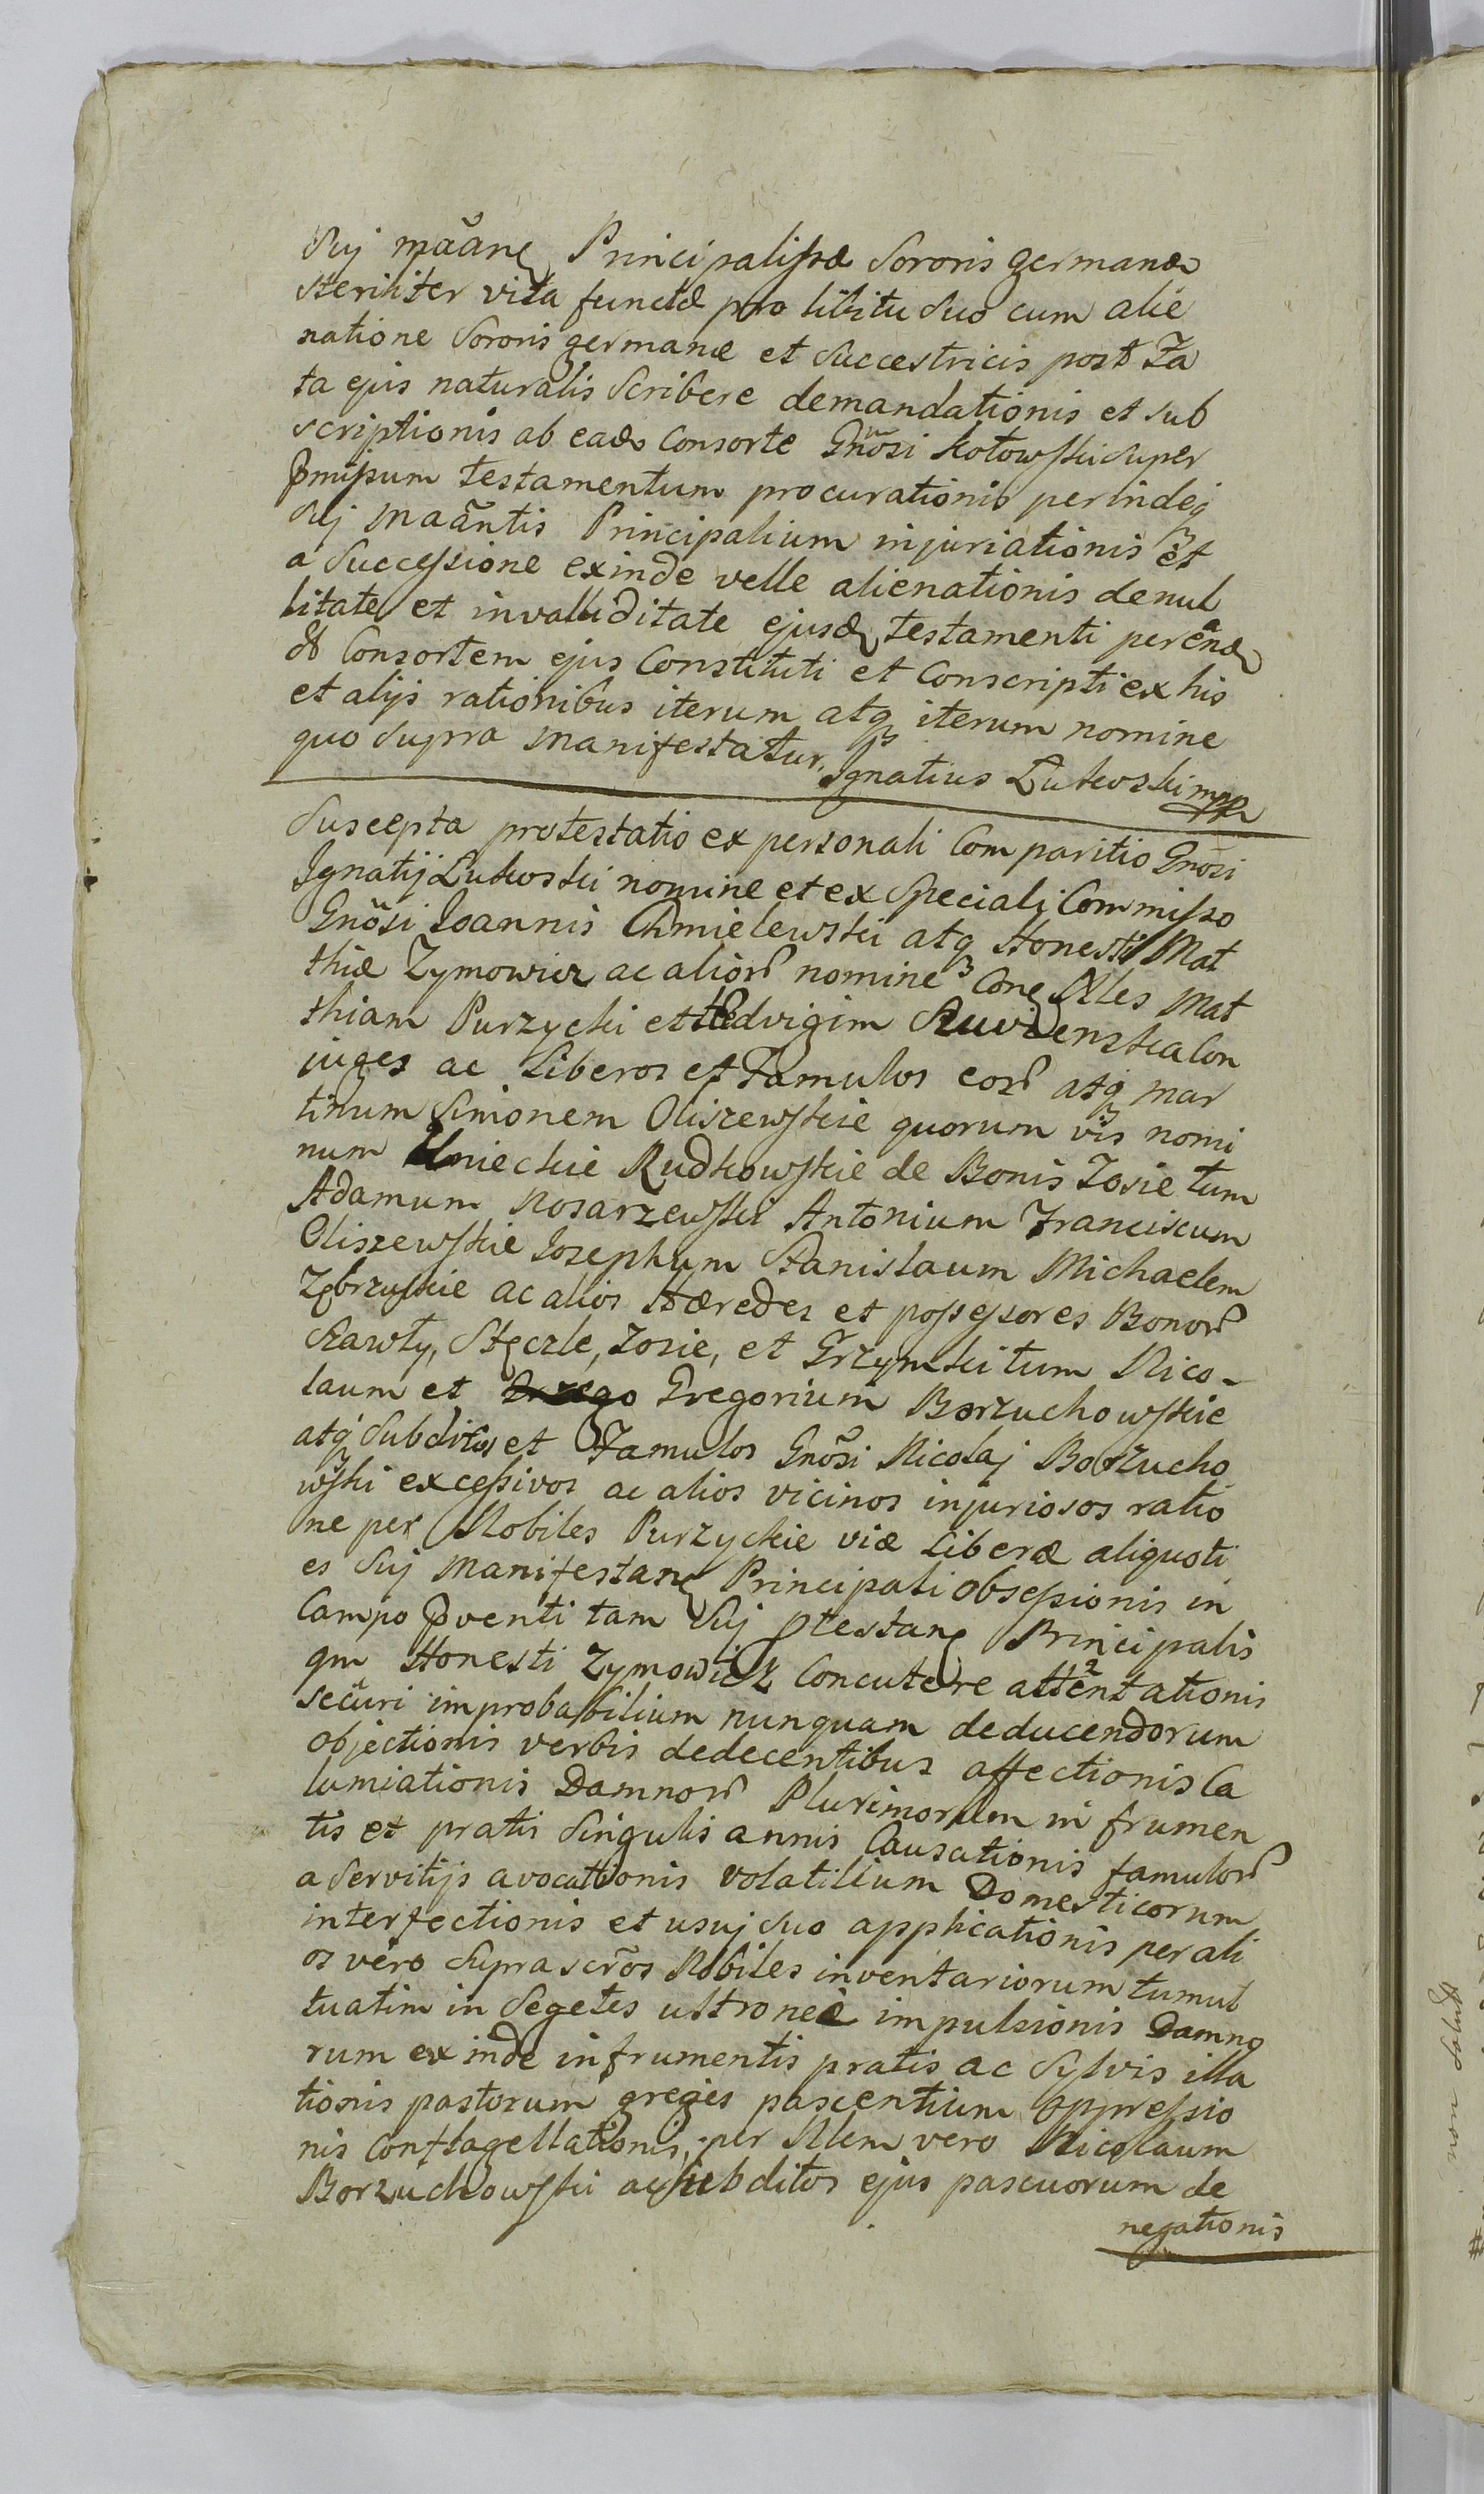 Sui mãane Principalissæ Sororis germanæ
steriliter vita functæ pro libitu suo cum alie
natione Sororis germanæ et Succestricis post Fa
ta ejus naturalis Scribere demandationis et sub
scriptionis ab eade Consorte Gnõsi Kotowski super
pmissum testamentum procurationis perindeq
Sej Maãntis Principalium injuriationis et
a Successione exinde velle alienationis de nul
litate et invalliditate ejusd testamenti per eñd
& Consortem ejus Constituti et Conscripti ex his
et alijs rationibus iterum atq iterum nomine
quo Supra Manifestatur. Ignatius Lutowski mpp
Suscepta protestatio ex personali Comparitio Gnõsi
Ignatij Lutowski nomine et ex Speciali Commisso
Gnõsi Joannis Chmielewski atq Honesti Mat
thiæ Zymowicz ac alior nomine Cone Nles Mat
thiam Purzycki et Hedvigim Con
iuges ac Liberos et Famulos eor atq Mar
tinum Simonem Oliszewskie quorum vis nomi
num Uniechie Rudkowskie de Bonis Zosie tum
Adamum Kosarzewski Antonium Franciscum
Oliszewskie Josephum Stanislaum Michaelem
Zębrzuskie ac alios Hæredes et possessores Bonor
Skawty, Stęczle, Zosie, et Grzymki tum Nico-
laum et Gregorium Borzuchowskie
atq Subditos et Famulos Gnõsi Nicolaj Borzucho
wski excessivos ac alios vicinos injuriosos ratio
ne per Nobiles Purzyckie viæ Liberæ aliquoti
es Suj Manifestane Principali Obsessionis in
Campo pventi tam Suj ptestane Principalis
qm Honesti Zymowicz Concutere attentationis
secũri improbabilium nunquam deducendorum
objectionis verbis dedecentibus affectionis Ca
lumiationis Damnor Plurimorum in frumen
tis et pratis Singulis annis Causationis famulor
a Servitijs avocationis volatilium Domesticorum
interfectionis et usuj suo applicationis per ali
os vero Suprascrõs Nobiles inventariorum tumul
tuatim in Segetes ultronee impulsionis Damno
rum exinde in frumentis pratis ac Sylvis illa
tionis pastorum greges pascentium oppressio
nis Conflagellationis, per Nlem vero Nicolaum
Borzuchowski ac subditos ejus pascuorum de
negationis